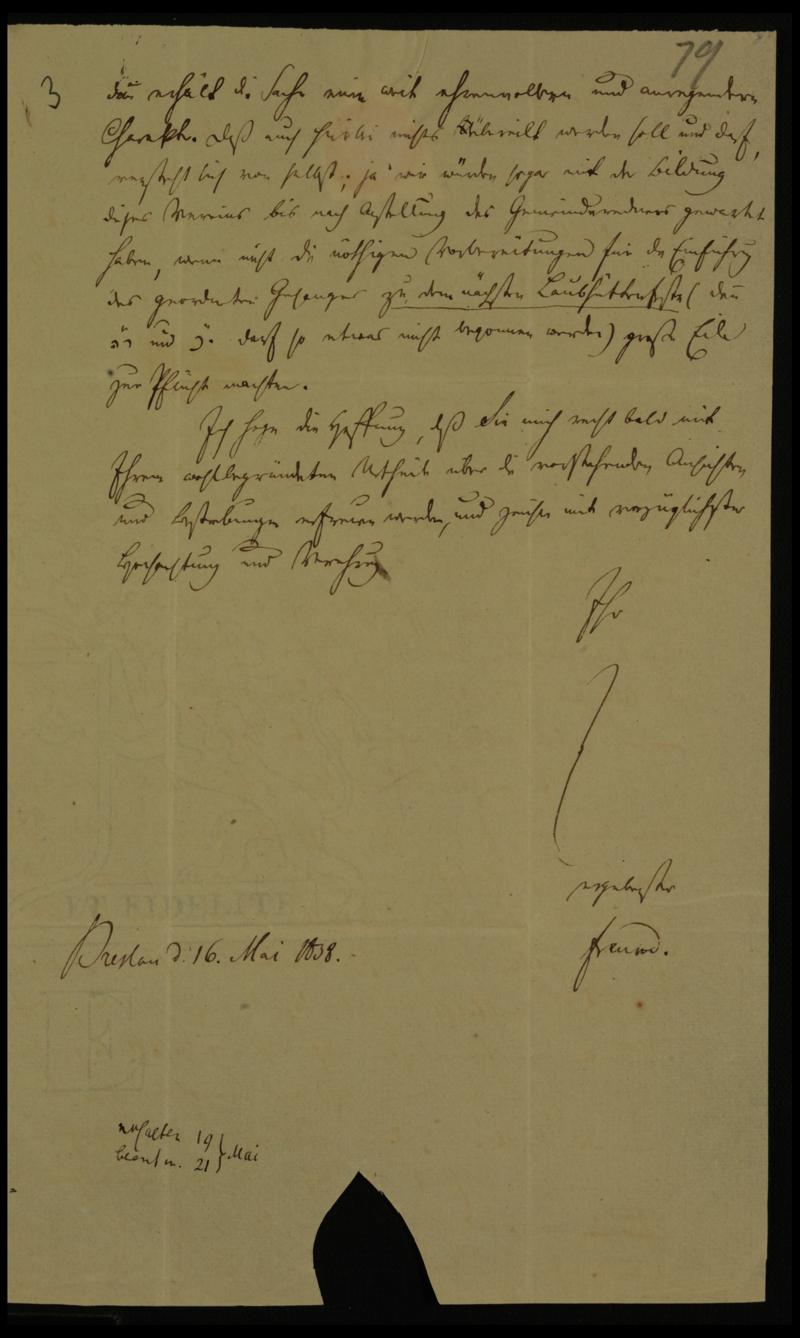 79
3
dann erhält die Sache einen weit ehrenvollern und anregendern
Charakter. Daß auch hierbei nichts übereilt werden soll und darf,
versteht sich von selbst; ja wir würden sogar mit der Bildung
dieses Vereins bis nach Anstellung des Gemeinderedners gewartet
haben, wenn nicht die nöthigen Vorbereitungen für die Einführung
des geordneten Gesanges zu dem nächsten Laubhüttenfeste (denn
und darf so etwas nicht begonnen werden) große Eile
zur Pflicht machten.
Ich hege die Hoffnung, daß Sie mich recht bald mit
Ihrem wohlbegründeten Urtheile über die vorstehenden Ansichten
und Bestrebungen erfreuen werden, und zeichne mit vorzüglichster
Hochachtung und Verehrung
Ihr
ergebenster
Freund.
Breslau d. 16. Mai 1838.
erhalten 19
beantw. 21 } Mai
ET FIDELITE